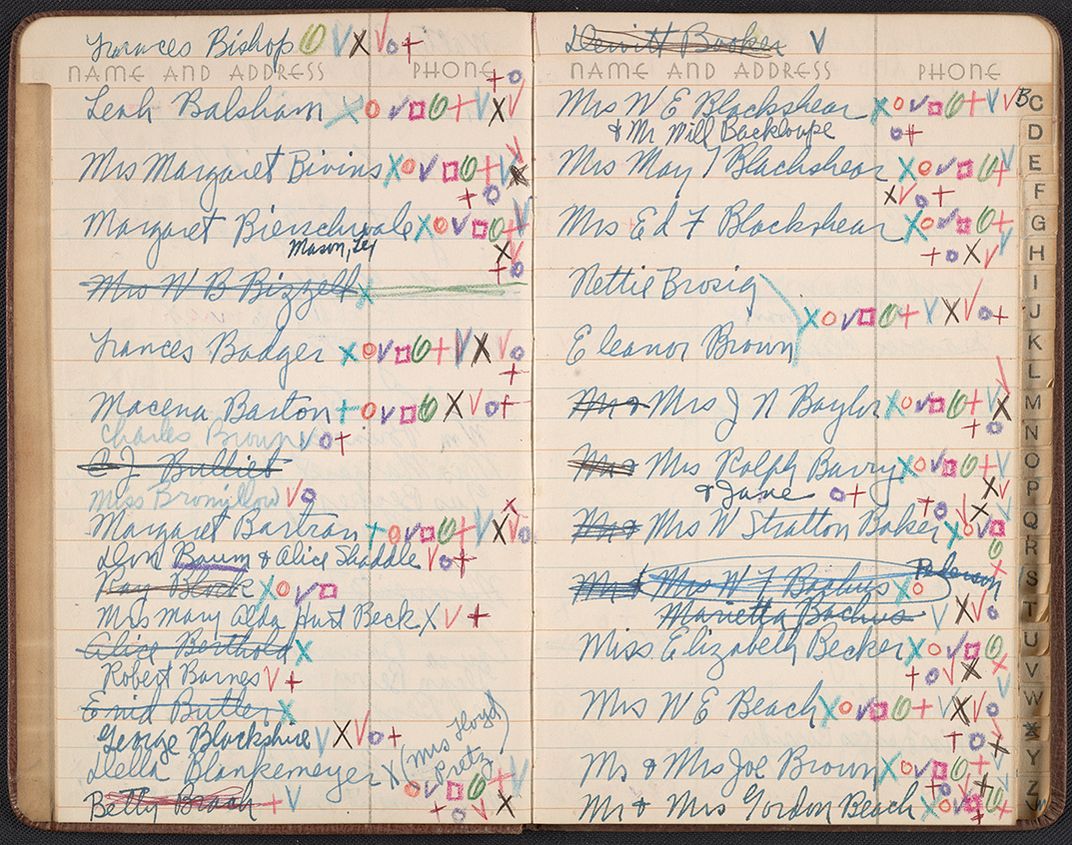 Frances Bishop
NAME AND ADDRESS PHONE
Leah Balsham
Mrs Margaret Bivins
Margaret Bierschwale
Mason,
Mrs W B Bizzell
Frances Badger
Macena Barton
Charles Brown
C J Bulliet
Miss Bromillow
Margaret Bartran
Don Baum & Alice Shaddle
Ray Block
Mrs Mary Alda Hart Beck
Alice Berthold
Robert Barnes
Enid Butler
George Blackshire
Della Blankemeyer (Mrs Lloyd
Pretz)
Betty Brach
Dewitt Booker
NAME AND ADDRESS PHONE
Mrs W E Blackshear
& Mr Will
Mrs May I Blackshear
Mrs Ed F Blackshear
Nettie Brosig
Eleanor Brown
Mrs J N Baylor
Mrs Ralph Barry
& Jane
Mrs W Stratton Baker
Mrs W F
Marietta Bachus
Miss Elizabeth Becker
Mrs W E Beach
Mr & Mrs Joe Brown
Mr & Mrs Gordon Beach
B
C
D
E
F
G
H
I
J
K
L
M
N
O
P
Q
R
S
T
U
V
W
X
Y
Z